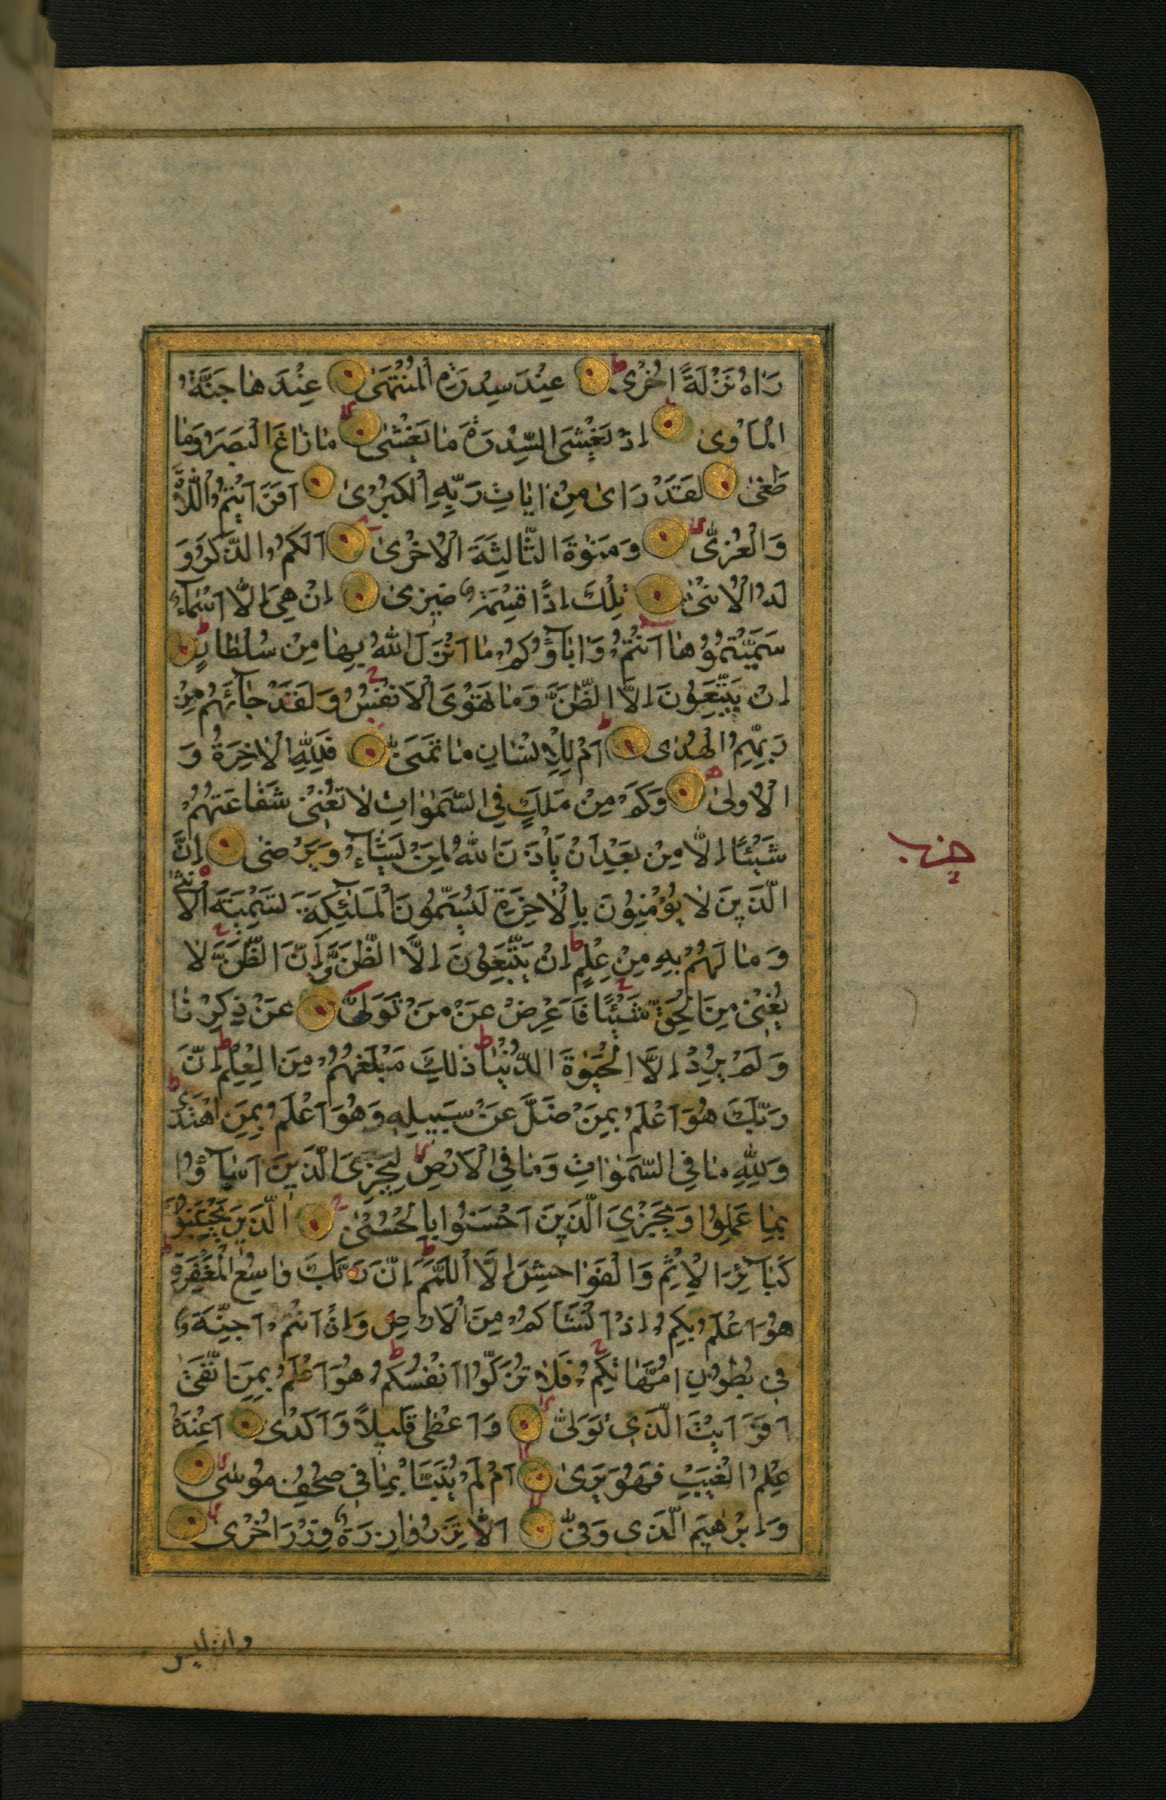 رَاٰهُ نَزْلَةً اُخْرٰى عِنْدَ سِدْرَةِ الْمُنْتَهٰى عِنْدَهٰا جَنَّةُ
الْمَاْوٰى اِذْ يَغْشَى السِّدْرَةَ مٰا يَغْشٰى مٰا زٰاغَ الْبَصَرُ وَمٰا
طَغٰى لَقَدْ رَاٰى مِنْ اٰيٰاتِ رَبِّهِ الْكُبْرٰى اَفَرَاَيْتُمُ اللّٰاتَ
وَالْعُزّٰى وَمَنٰوةَ الثّٰالِثَةَ الْاُخْرٰى اَلَكُمُ الذَّكَرُ وَ
لَهُ الْاُنْثٰى تِلْكَ اِذًا قِسْمَةٌ ضِيزٰى اِنْ هِىَ اِلّٰا اَسْمٰٓاءٌ
سَمَّيْتُمُوهٰا اَنْتُمْ وَاٰبٰٓاؤُكُمْ مٰا اَنْزَلَ اللّٰهُ بِهٰا مِنْ سُلْطٰانٍ
اِنْ يَتَّبِعُونَ اِلَّا الظَّنَّ وَمٰا تَهْوَى الْاَنْفُسُ وَلَقَدْ جٰٓائَهُمْ مِنْ
رَبِّهِمُ الْهُدٰى اَمْ لِلْاِنْسٰانِ مٰا تَمَنّٰى فَلِلّٰهِ الْاٰخِرَةُ وَ
الْاُولٰى وَكَمْ مِنْ مَلَكٍ فِى السَّمٰوٰاتِ لٰا تُغْنِىْ شَفٰاعَتُهُمْ
شَيْئًا اِلّٰا مِنْ بَعْدِ اَنْ يَاْذَنَ اللّٰهُ لِمَنْ يَشٰٓاءُ وَيَرْضٰى اِنَّ
الَّذِينَ لٰا يُؤْمِنُونَ بِالْاٰخِرَةِ لَيُسَمُّونَ الْمَلٰٓئِكَةَ تَسْمِيَةَ الْاُنْثٰى
وَمٰا لَهُمْ بِهِ مِنْ عِلْمٍ اِنْ يَتَّبِعُونَ اِلَّا الظَّنَّ وَاِنَّ الظَّنَّ لٰا
يُغْنِىْ مِنَ الْحَقِّ شَيْئًا فَاَعْرِضْ عَنْ مَنْ تَوَلّٰى عَنْ ذِكْرِنٰا
وَلَمْ يُرِدْ اِلَّا الْحَيٰوةَ الدُّنْيٰا ذٰلِكَ مَبْلَغُهُمْ مِنَ الْعِلْمِ اِنَّ
رَبَّكَ هُوَ اَعْلَمُ بِمَنْ ضَلَّ عَنْ سَبِيلِهِ وَهُوَ اَعْلَمُ بِمَنِ اهْتَدٰى
وَلِلّٰهِ مٰا فِى السَّمٰوٰاتِ وَمٰا فِى الْاَرْضِ لِيَجْزِىَ الَّذِينَ اَسٰٓاؤُا
بِمٰا عَمِلُوا وَيَجْزِىَ الَّذِينَ اَحْسَنُوا بِالْحُسْنٰى الَّذِينَ يَجْتَنِبُونَ
كَبٰٓائِرَ الْاِثْمِ وَالْفَوٰاحِشَ اِلَّا اللَّمَمَ اِنَّ رَبَّكَ وٰاسِعُ الْمَغْفِرَةِ
هُوَ اَعْلَمُ بِكُمْ اِذْ اَنْشَاَكُمْ مِنَ الْاَرْضِ وَاِذْ اَنْتُمْ اَجِنَّةٌ
فِى بُطُونِ اُمَّهٰاتِكُمْ فَلٰا تُزَكُّوا اَنْفُسَكُمْ هُوَ اَعْلَمُ بِمَنِ اتَّقٰى
اَفَرَاَيْتَ الَّذِى تَوَلّٰى وَاَعْطٰى قَلِيلًا وَاَكْدٰى اَعِنْدَهُ
عِلْمُ الْغَيْبِ فَهُوَ يَرٰى اَمْ لَمْ يُنَبَّاْ بِمٰا فِى صُحُفِ مُوسٰى
وَاِبْرٰهِيمَ الَّذِى وَفّٰى اَلّٰا تَزِرُ وٰازِرَةٌ وِزْرَ اُخْرٰى
حزب
وان ليس